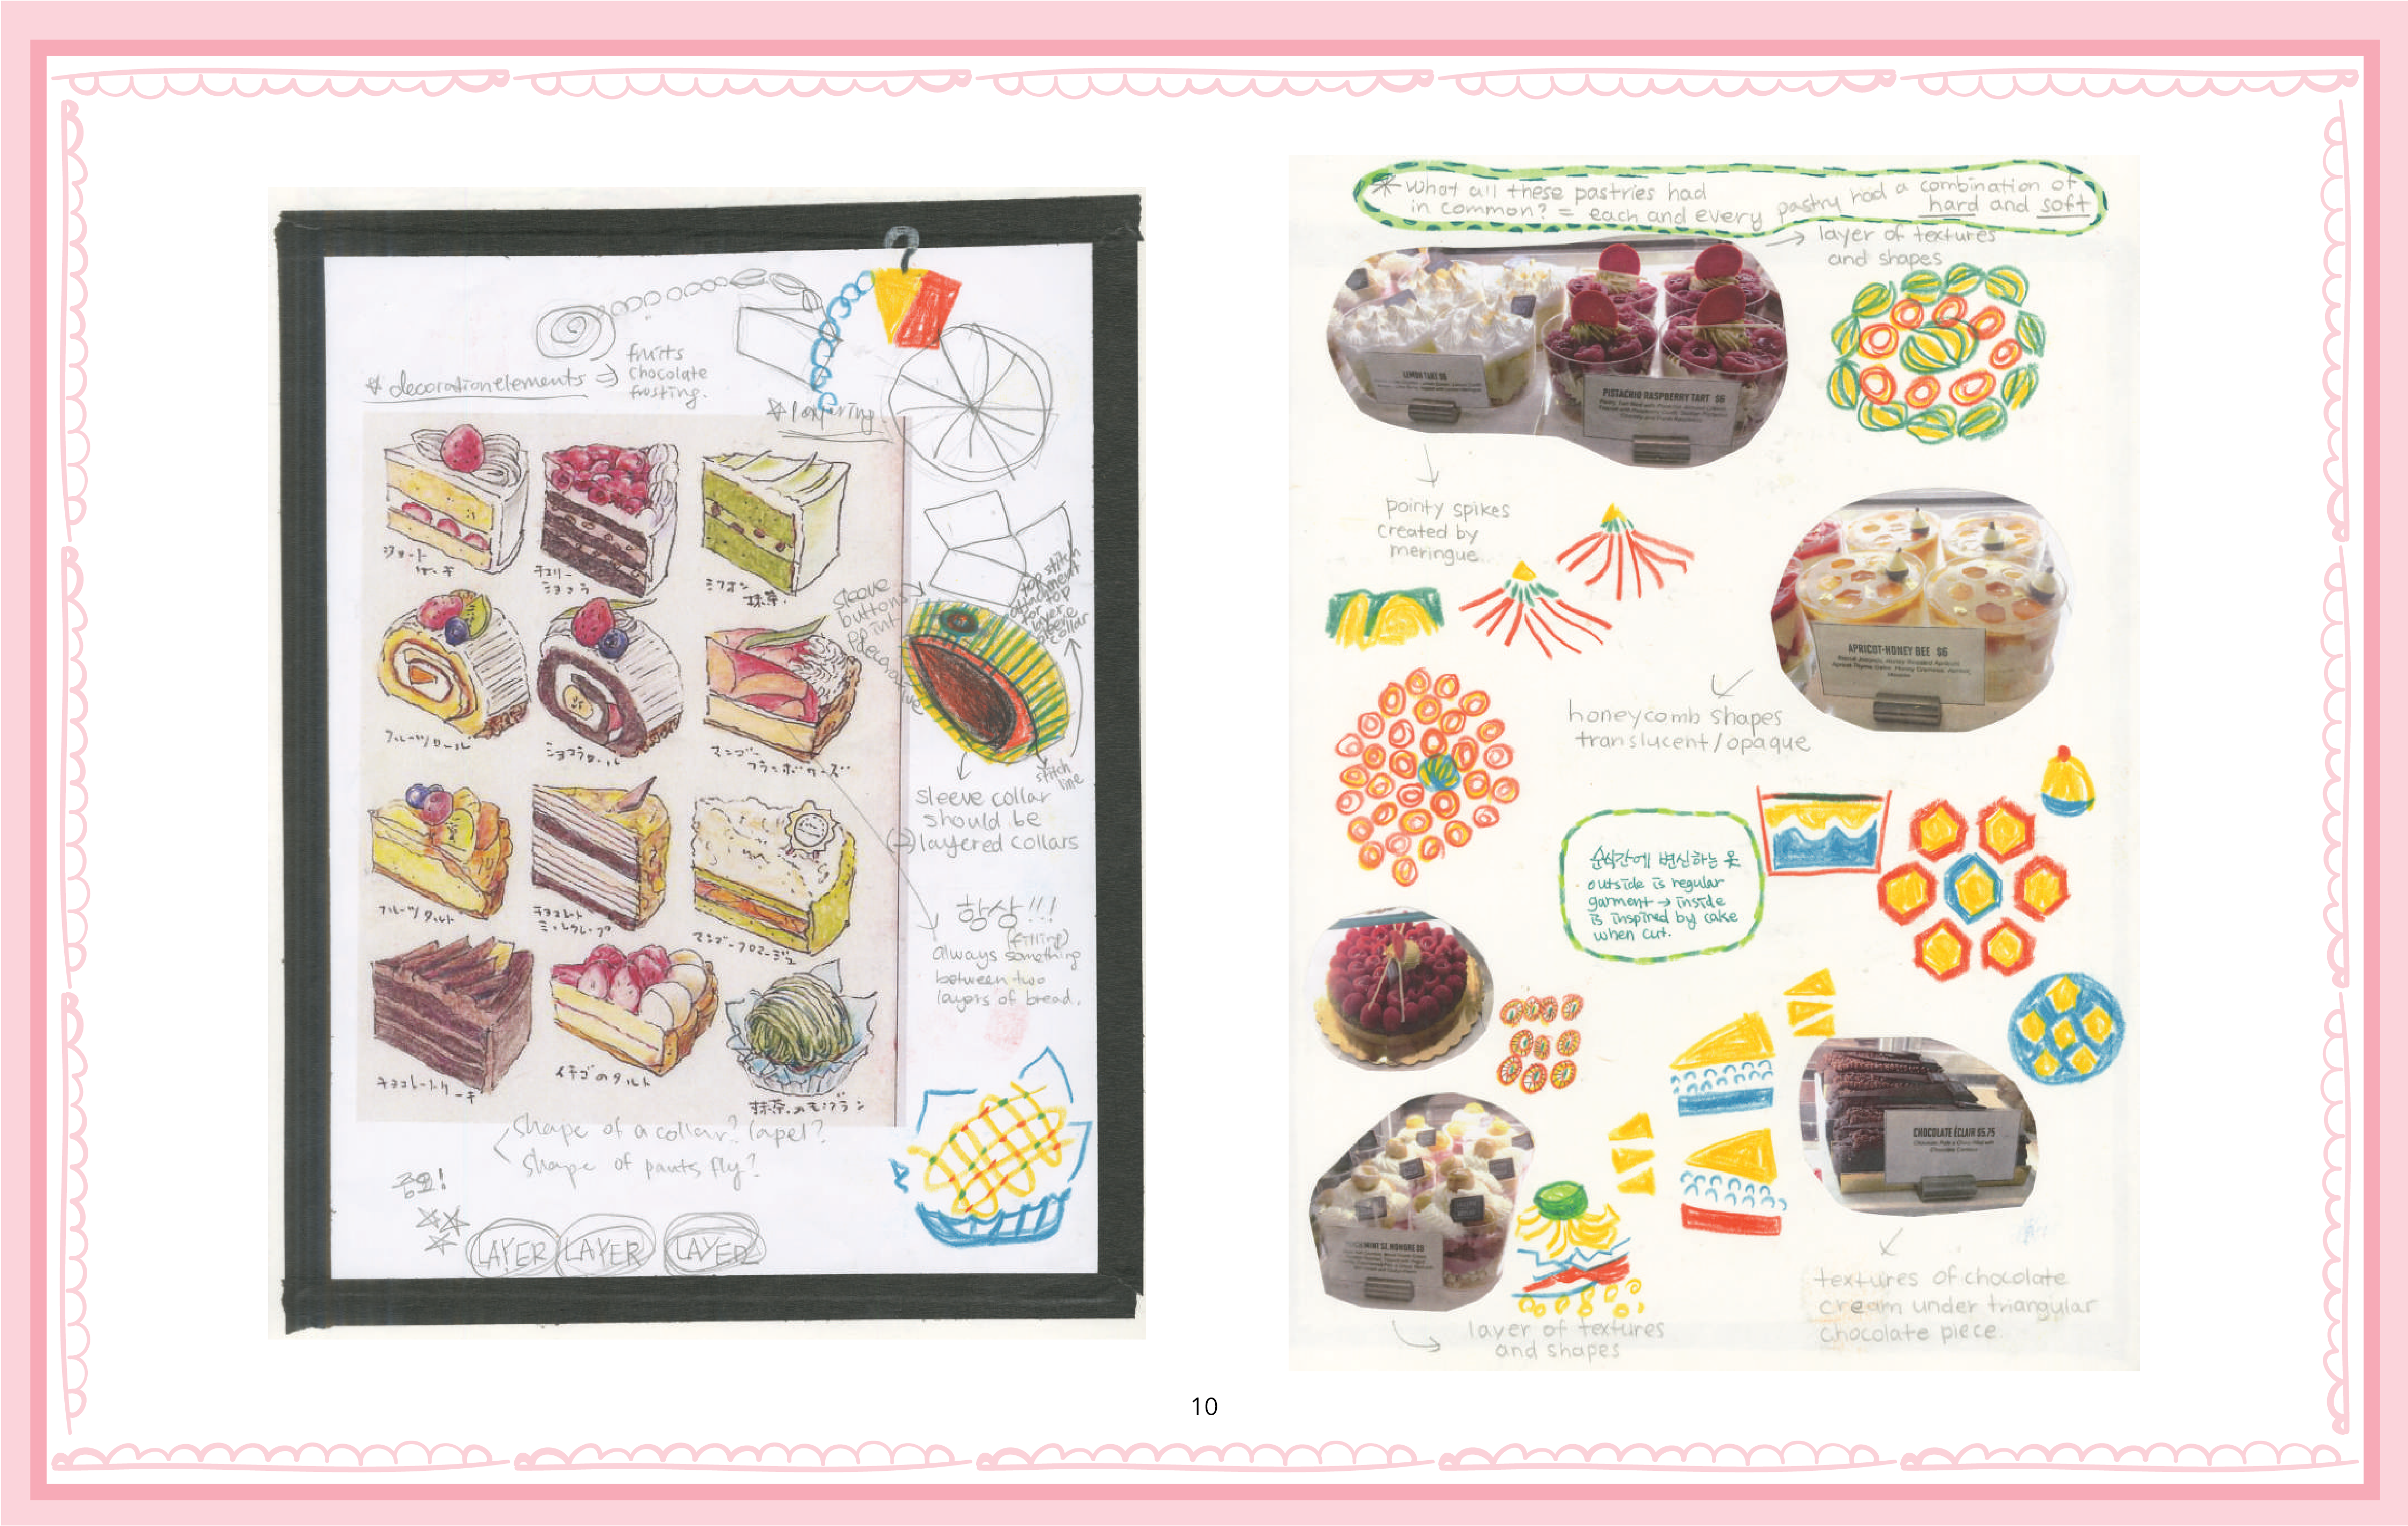 * decoration elements ⇒ fruits
chocolate
frosting.
* layering
ショート
ケーキ
チェリー
ショコラ
シフォン
抹茶.
フルーツロール
ショコラロール
マンゴー
フランボワーズ
フルーツタルト
チョコレート
ミルクレープ
マンゴーフロマージュ
チョコレートケーキ
イチゴのタルト
抹茶のモンブラン
sleeve
buttons
point
decorative
top stitch
attachment
for top
layer
sleeve
collar
stitch
line
sleeve collar
should be
(→) layered collars
항상!!!
(filling)
always something
between two
layers of bread.
shape of a collar? lapel?
shape of pants fly?
중요!
LAYER LAYER LAYER
* What all these pastries had
in common? = each and every pastry had a combination of
hard and soft
→ layer of textures
and shapes
LEMON TART $6
PISTACHIO RASPBERRY TART $6
pointy spikes
created by
meringue.
APRICOT-HONEY BEE $6
honeycomb shapes
translucent/opaque
순식간에 변신하는 옷
outside is regular
garment → inside
is inspired by cake
when cut.
MINT ST. HONORE $6
CHOCOLATE ÉCLAIR $5.75
layer of textures
and shapes
textures of chocolate
cream under triangular
chocolate piece.
10